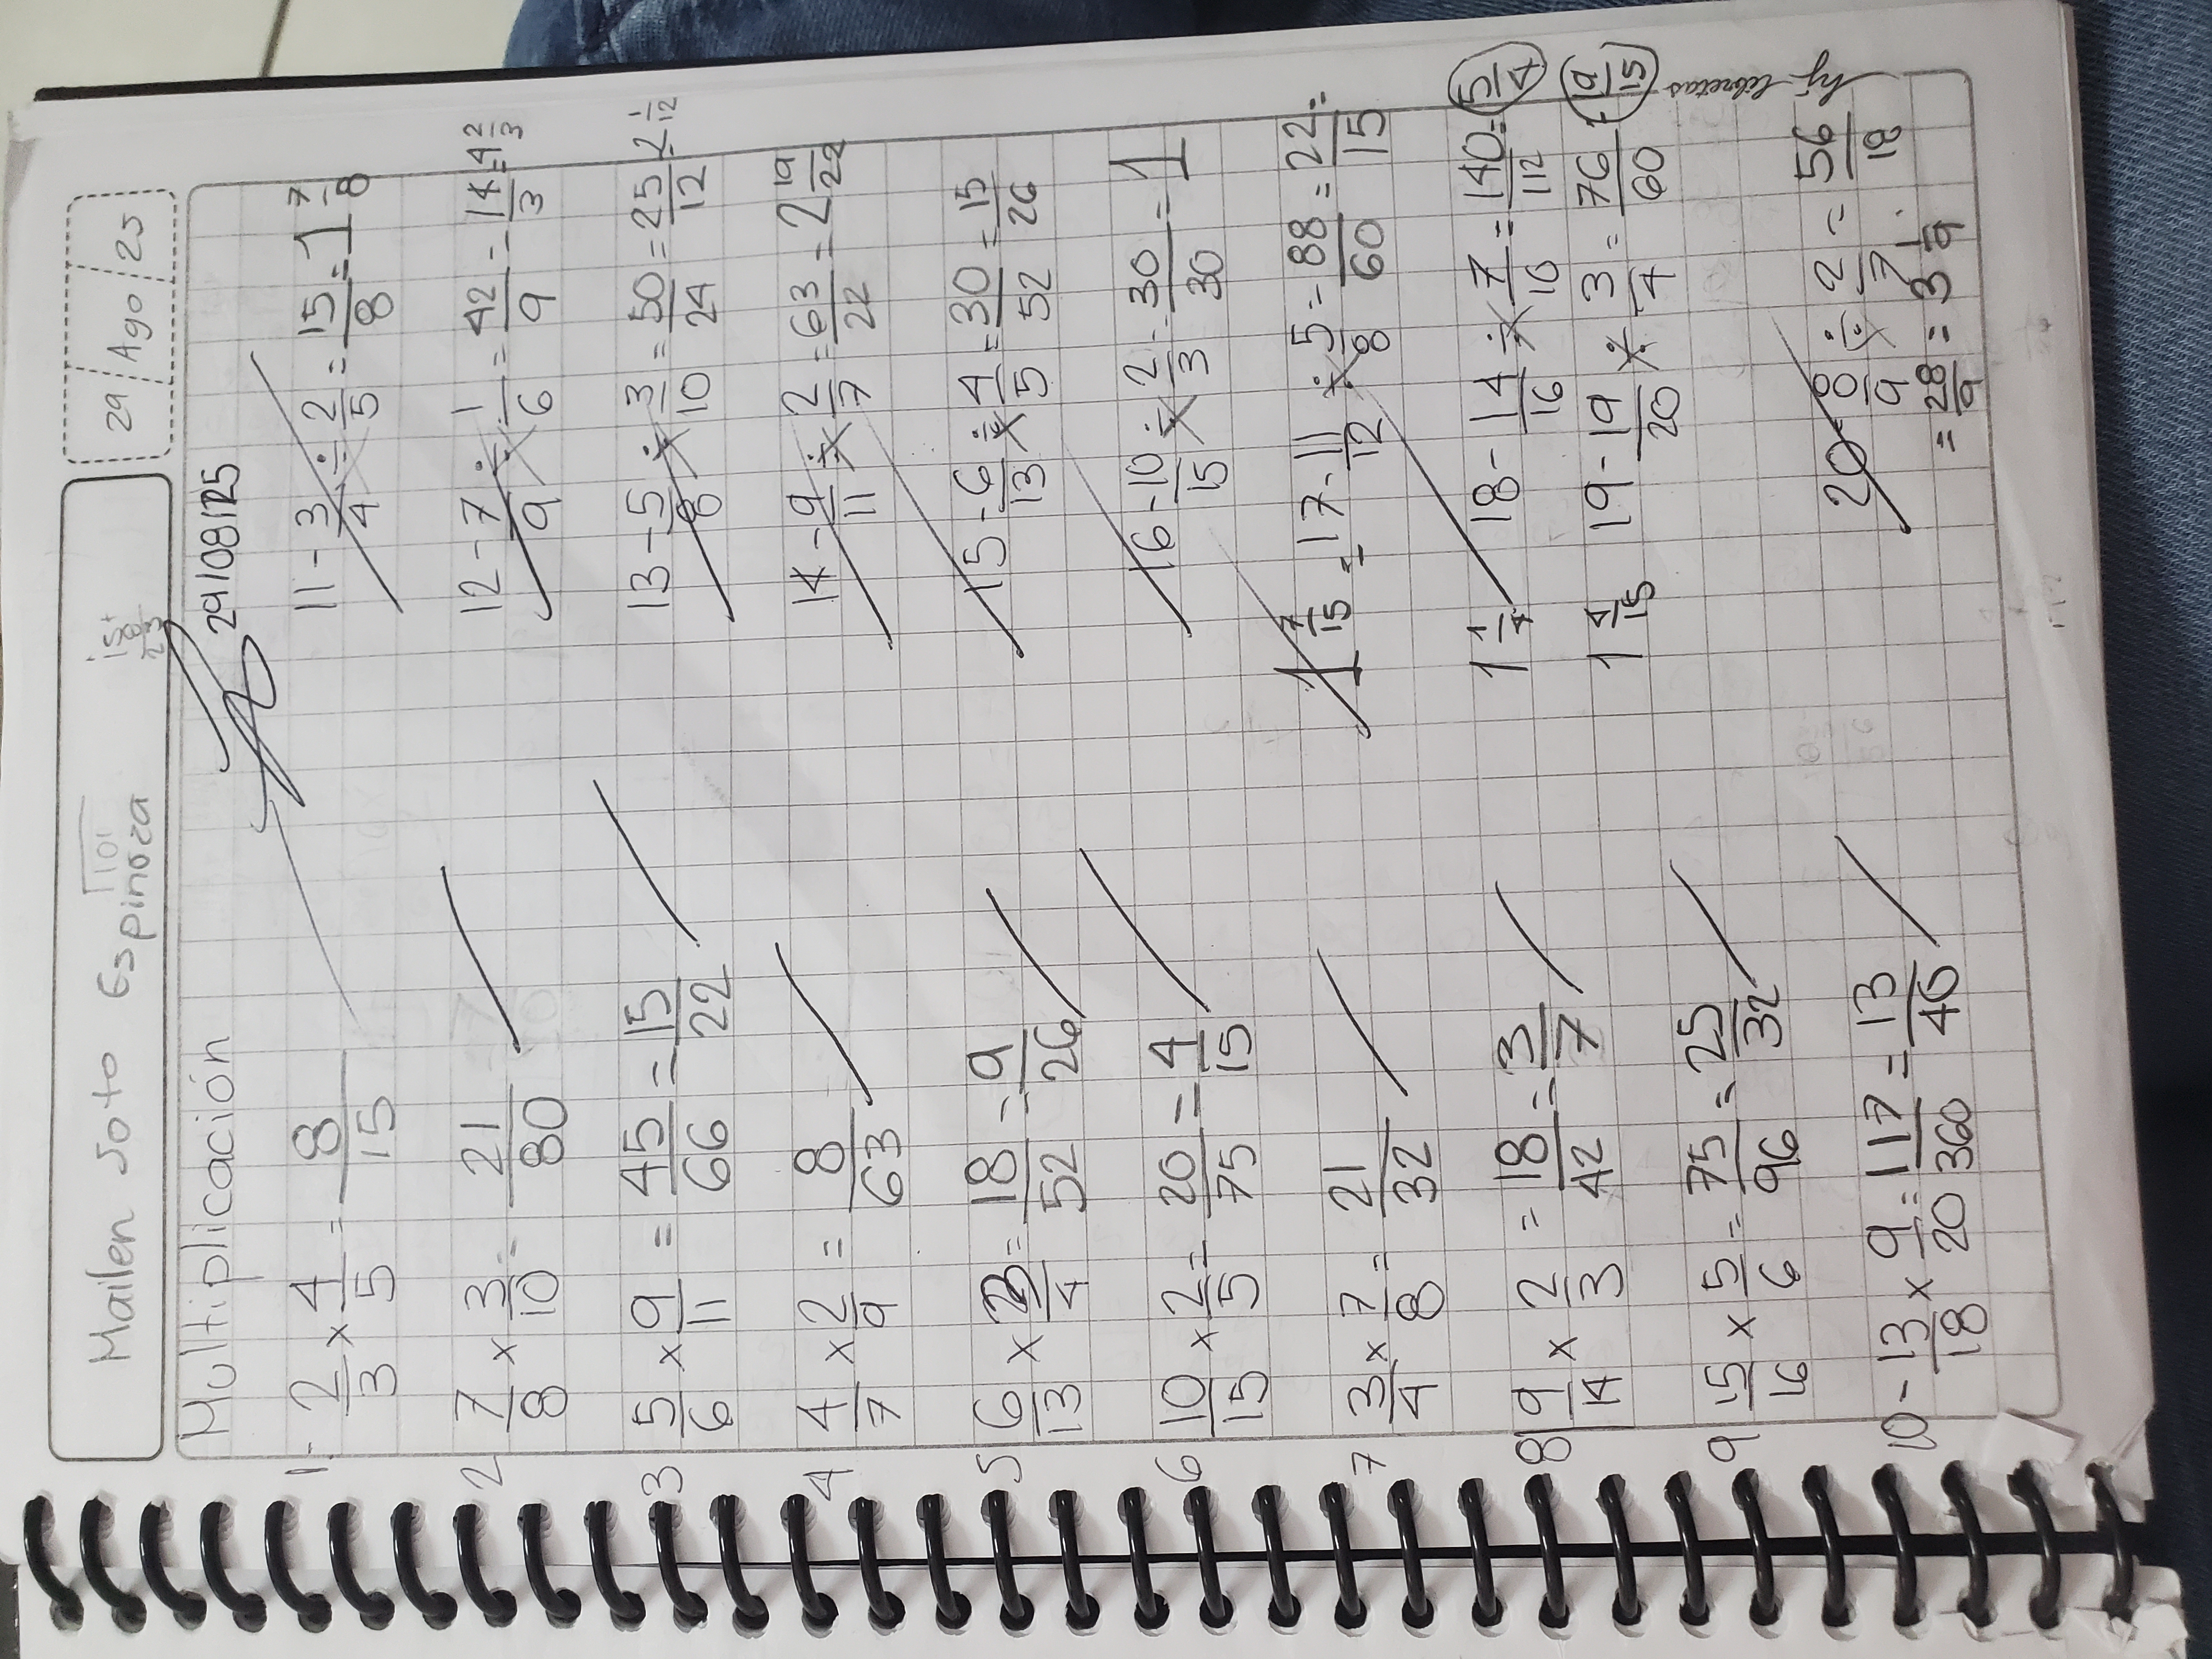 Mailen Soto Espinoza
29 Ago 25
Multiplicación
29/08/25
1.- 2/3 x 4/5 = 8/15
2 7/8 x 3/10 = 21/80
3 5/6 x 9/11 = 45/66 = 15/22
4 4/7 x 2/9 = 8/63
5 6/13 x 3/4 = 18/52 = 9/26
6 10/15 x 2/5 = 20/75 = 4/15
7 3/4 x 7/8 = 21/32
8 9/14 x 2/3 = 18/42 = 3/7
9 15/16 x 5/6 = 75/96 = 25/32
10 - 13/18 x 9/20 = 117/360 = 13/40
11 - 3/4 ÷ 2/5 = 15/8 = 1 7/8
12 - 7/9 ÷ 1/6 = 42/9 = 14/3 = 4 2/3
13 - 5/8 ÷ 3/10 = 50/24 = 25/12 = 2 1/12
14 - 9/11 ÷ 2/7 = 63/22 = 2 19/22
15 - 6/13 ÷ 4/5 = 30/52 = 15/26
16 - 10/15 ÷ 2/3 = 30/30 = 1
17 - 11/12 ÷ 5/8 = 88/60 = 22/15 =
= 1 7/15
18 - 14/16 ÷ 7/10 = 140/112 = 5/4
1 1/4
19 - 19/20 ÷ 3/4 = 76/60 = 19/15
1 4/15
20 - 8/9 ÷ 2/7 = 56/18
= 28/9 = 3 1/9